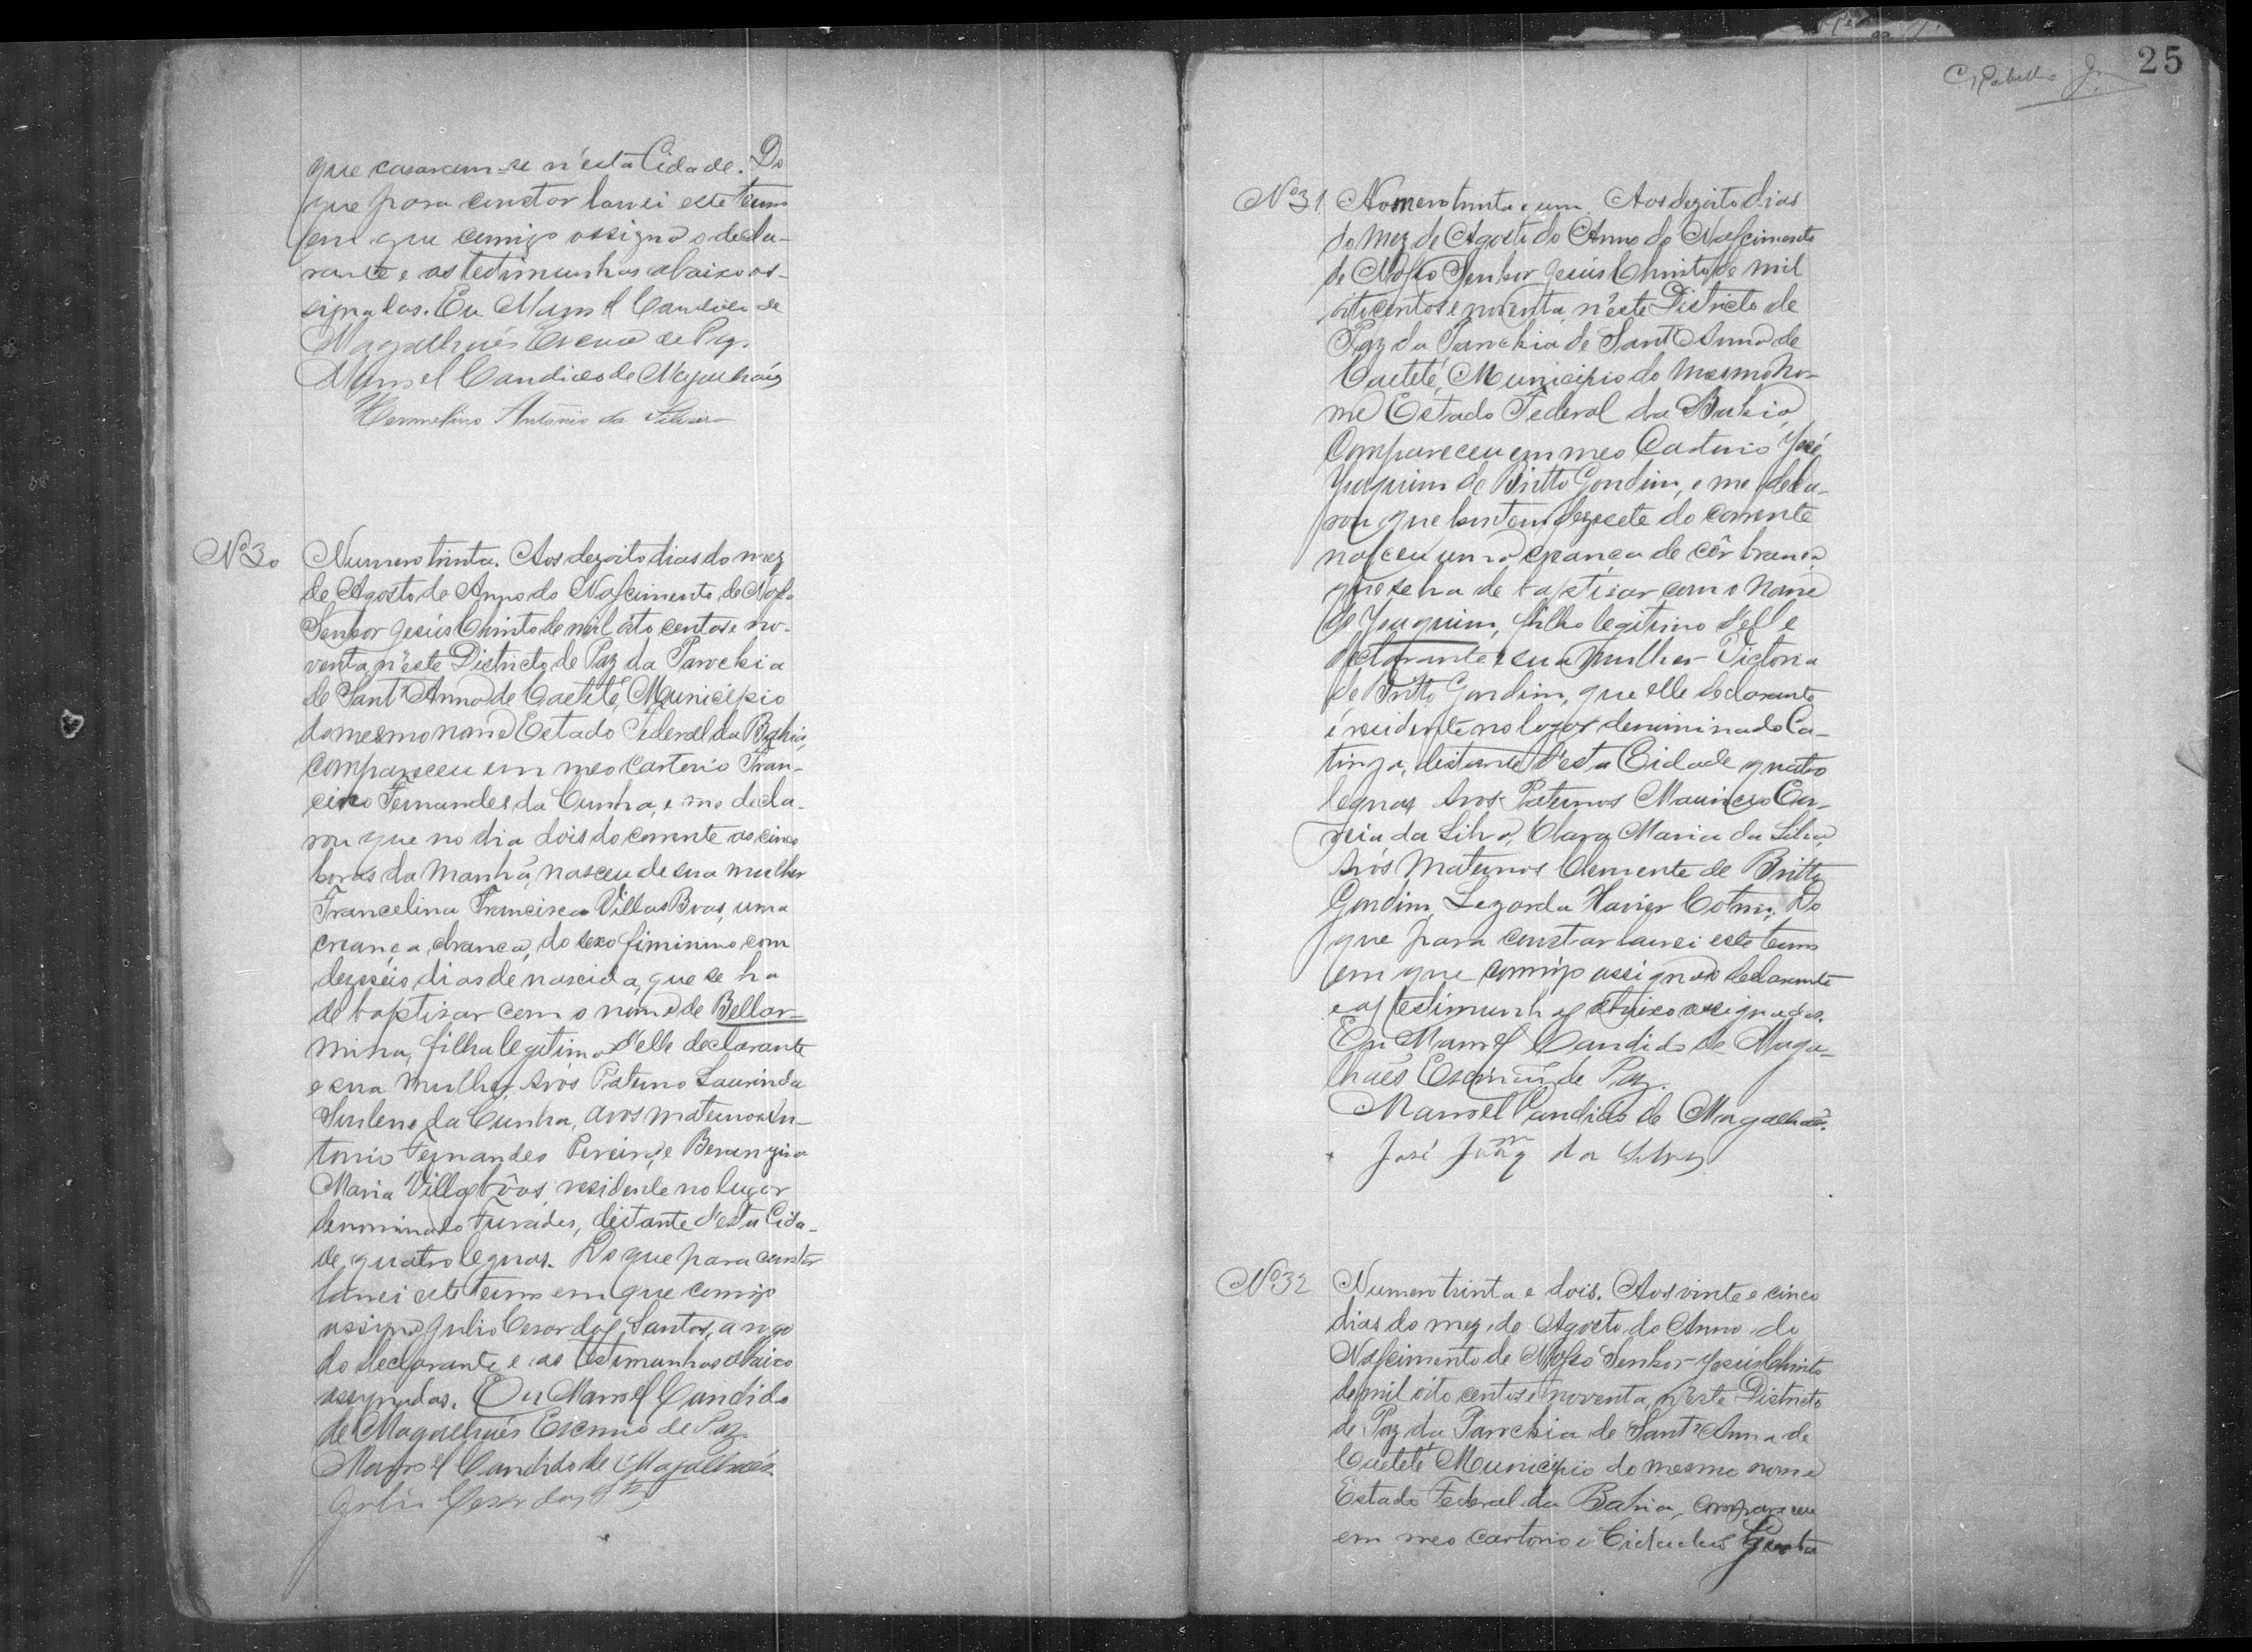 que casaram-se n'esta Cidade. Do
que para constar lancei este termo
em que comigo assigna o decla-
rante e as testimunhas abaixo as-
signadas. Eu Manoel Candido de
Magalhães Escrivão de Paz.
Manoel Candido de Magalhães
Antonio da
Nº 30 Numero trinta. Aos dezoito dias do mez
de Agosto do Anno do Nascimento de Nosso
Senhor Jesús Christo de mil oito centos e no-
venta, n'este Districto de Paz da Parochia
de Sant'Anna de Caetité, Municipio
do mesmo nome Estado Federal da Bahia,
compareceu em meo cartorio Fran-
cisco Fernandes da Cunha, e me decla-
rou que no dia dois do corrente as cinco
horas da manhã, nasceu de sua mulher
Francelina Francisca Villas Boas, uma
creança branca, do sexo fiminino com
dezeseis dias de nascida, que se ha
de baptisar com o nome de Bellar-
mina, filha legitima d'elle declarante
e sua mulher, Avós Paterno Laurinda
da Cunha, avos maternos An-
tonio Fernandes Pereira, e
Maria Villas bôas, residente no lugar
denominado distante d'esta Cida-
de quatro leguas. Do que para constar
lancei este termo em que comigo
assigna Julio Cesar dos Santos, a rogo
do declarante e as testimunhas abaixo
assignadas. Eu Manoel Candido
de Magalhães Escrivão de Paz.
Manoel Candido de Magalhães.
Julio Cesar dos Stos
25
Nº 31 Nomero trinta e um. Aos dezoito dias
do mez de Agosto do Anno do Nascimento
de Nosso Senhor Jesús Christo de mil
oito centos e noventa, n'este Districto de
Paz da Parochia de Sant'Anna de
Caetité, Municipio do mesmo no-
me Estado Federal da Bahia,
Compareceu em meo Cartorio José
Joaquim de Britto Gondim, e me decla-
rou que hontem dezesete do corrente
nasceu uma creança de côr branca,
que se ha de baptisar com o nome
de Joaquim, filho legitimo d'elle
declarante e sua mulher Victoria
de Britto Gondim, que elle declarante
é residente no logar denominado Ca-
tinga, distante d'esta Cidade quatro
leguas Avos Paternos Mauricio
da Silva, Clara Maria da Silva,
Avós Maternos Clemente de Britto
Gondim, Xavier Do
que para constar lancei este termo
em que comigo assigna o declarante
e as testimunhas abaixo assignadas.
Eu Manoel Candido de Maga-
lhães Escrivão de Paz.
Manoel Candido de Magalhães.
José da Silva
Nº 32 Numero trinta e dois. Aos vinte e cinco
dias do mez de Agosto do Anno do
Nascimento de Nosso Senhor Jesús Christo
de mil oito centos e noventa, n'este Districto
de Paz da Parochia de Sant'Anna de
Caetité Municipio do mesmo nome
Estado Federal da Bahia, compareceu
em meo cartorio o Cidadão